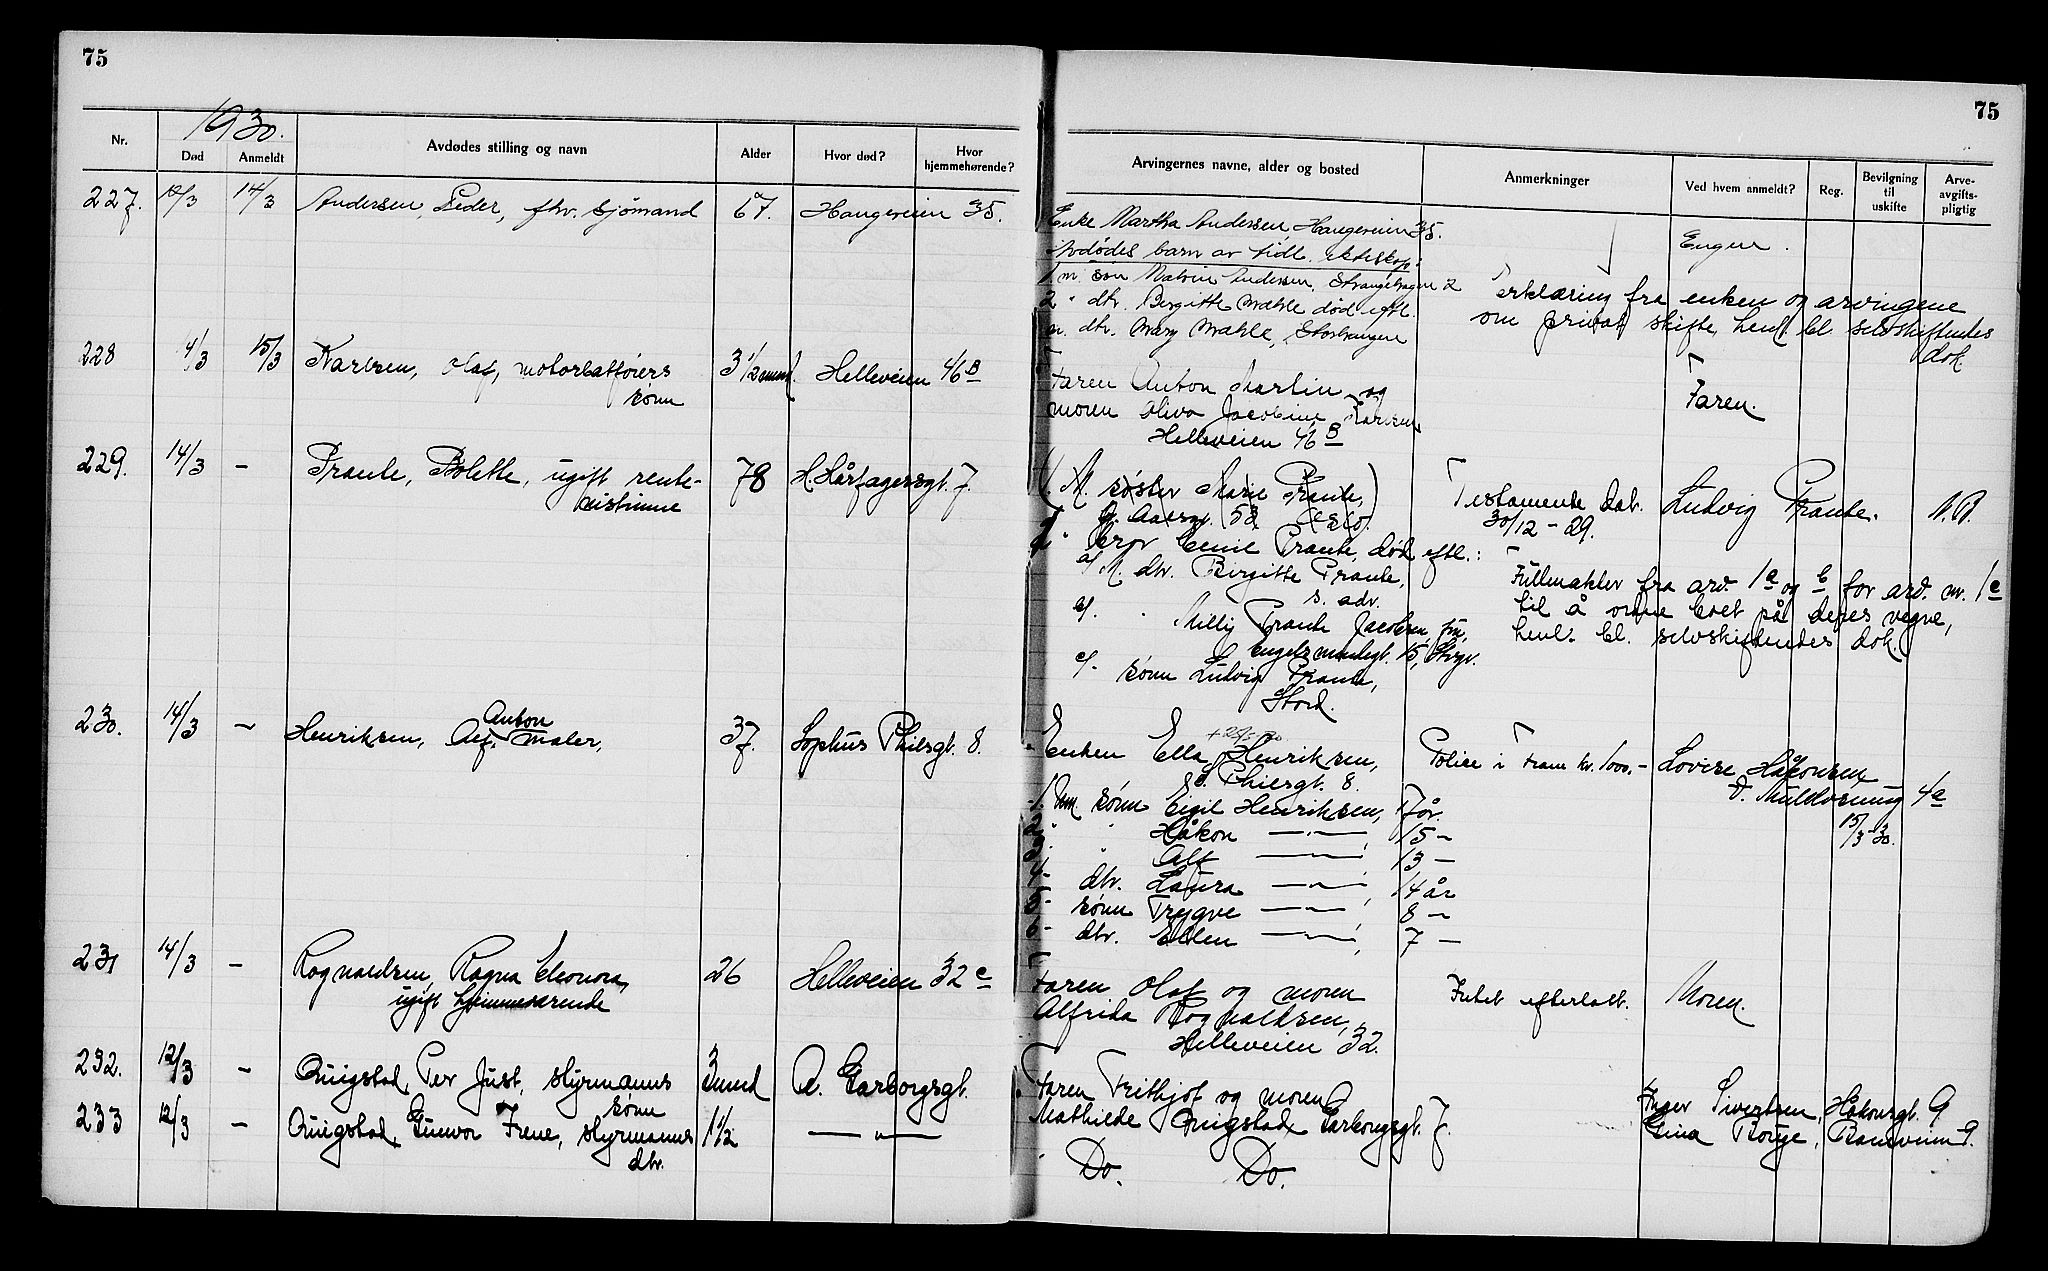 75
75
1930.
Nr. Død Anmeldt Avdødes stilling og navn Alder Hvor død? Hvor hjemmehørende?
Arvingernes navne, alder og bosted Anmerkninger Ved hvem anmeldt? Reg. Bevilgning til uskifte Arve-avgifts-pligtig
227. 12/3 14/3 Andersen, Peder, fhv. sjømand 67. Haugeveien 35.
Enke Martha Andersen Haugeveien 35. Enken.
Avdødes barn av tidl. ekteskap:
1 m. søn Andersen, 2
2 " dtr. Birgitte Mæhle død eftl.
m. dtr. Mary Mæhle,
erklæring fra enken og arvingene
om privat skifte henl. bl. selvskiftendes
dok.
228 4/3 15/3 Karlsen, Olaf, motorbatføiers 3 1/2 mnd. Helleveien 46 B
sønn
Faren Anton Martin og Faren.
moren Oliva Jacobine Karlsen
Helleveien 46 B
229. 14/3 - Prante, Bolette, ugift rente- 78 H. Hårfagersgt. 7.
nistinne
1. M. søster Marie Prante, Testamente dat. Ludvig Prante.
53 30/12 - 29.
" bror Emil Prante, død eftl.:
a/ M. dtr. Birgitte Prante,
s. adr.
" Milly Prante Jacobsen, frue,
15,
c/- sønn Ludvig Prante,
Stord.
Fullmakter fra arv. 1 a og b for arv. nr. 1 c
til å ordne boet på deres vegne,
henl. bl. selvskiftendes dok.
230. 14/3 - Henriksen, Alf Anton maler, 37. Sophus Thiisgt. 8.
Enken Ella Henriksen, Police i Fram kr. 1000.- Lovise Håkonsen
S. Thiisgt. 8. 4a
1. Um sønn Eigil Henriksen, 17 år. 15/3-30.
2. " Håkon —"—, 15 -
3. " Alf —"—, 13 -
4- dtr. Laura —"—, 14 år
5- sønn Trygve —"—, 8 -
6- dtr. Ellen —"—, 7 -
231 14/3 - Rognaldsen, Ragna Eleonora, 26 Helleveien 32 c
ugift hjemmeværende
Faren Olaf og moren Intet efterlatt. Moren.
Alfrida Rognaldsen,
Helleveien 32.
232. 12/3 - Quigstad, Per Just, styrmanns 3 mnd A. Garborgsgt.
sønn
Faren Frithjof og moren Inger Sivertsen, Håkonsgt. 9
Mathilde Quigstad, Garborgsgt. 7.
233 12/3 - Quigstad, Gunvor Irene, styrmanns 1 1/2 —"—
dtr.
Do. Do.